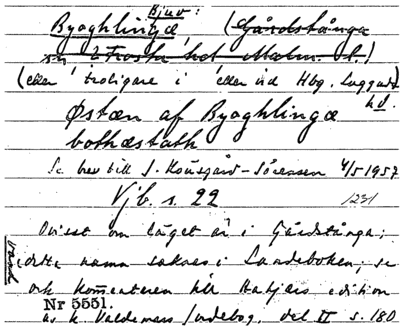 Bjuv:
Byaghlingæ, (Gårdstånga
sn Frosta hd Malm. l.)
(eller troligare i eller vid Hbg. Luggude
hd.
Østæn af Byaghlingæ
bothæstath
Se brev till J. Kousgård-Sörensen 4/5 1957
Vjb. s. 22
1231
Ovisst om läget är i Gårdstånga;
detta namn saknas i Landeboken; se
och kommentaren till
Nr 5551.
av k. Valdemars Jordebog, del II s. 180